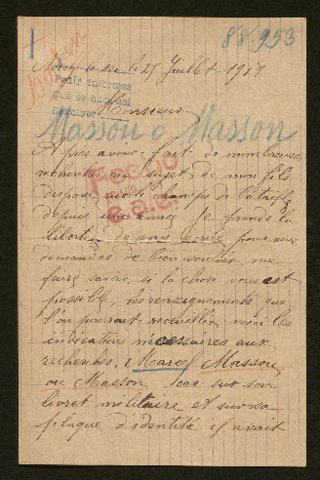 88,953
le 25 Juillet 1917
Monsieur
Massou o Masson
Après avoir fait de nombreuses
recherches au sujet de mon fils
disparu sur le champs de bataille
depuis une année je prends la
liberté de vous écrire pour vous
demander de bien vouloir me
faire savoir, si la chose vous est
possible, les renseignements que
l'on pourrait recueillir, voici les
indications nécessaires aux
recherches, Marcel Massou
ou Masson, car sur son
livret militaire et sur sa
plaque d'identité il avait